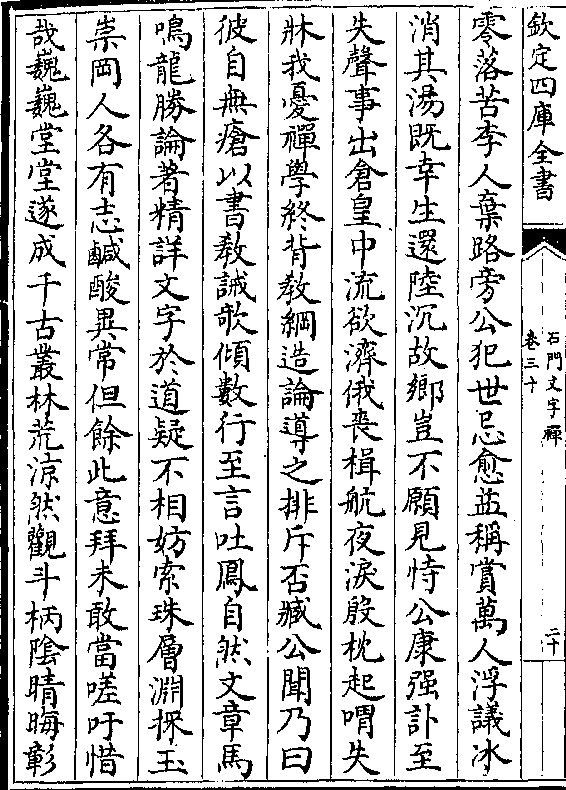 欽定四庫全書
石門文字禪
卷三十
二十
零落苦李人棄路旁公犯世忌愈益稱賞萬人浮議冰
消其湯既幸生還陸沉故鄉豈不願見恃公康强訃至
失聲事出倉皇中流欲濟俄喪楫航夜淚殷枕起喟失
牀我憂禪學終背教綱造論導之排斥否臧公聞乃曰
彼自無瘡以書教誡歌傾數行至言吐鳳自然文章馬
鳴龍勝論著精詳文字於道疑不相妨索珠層淵探玉
崇岡人各有志鹹酸異常但餘此意拜未敢當嗟吁惜
哉巍巍堂堂遂成千古叢林荒涼然觀斗柄陰晴晦彰